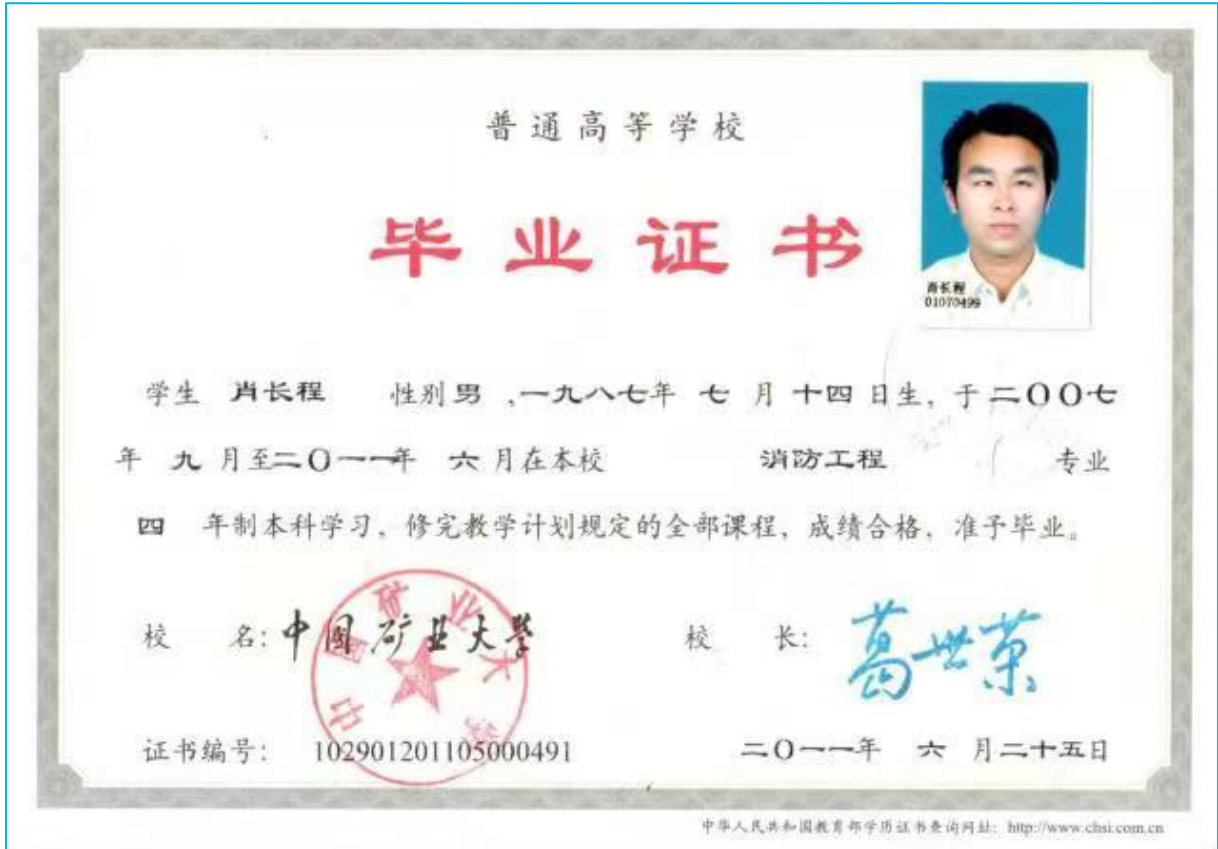 普通高等学校
毕业证书
肖长程
01070499
学生 肖长程 性别 男 ,一九八七年 七 月 十四 日生, 于 二〇〇七
年 九 月至二〇一一年 六 月在本校 消防工程 专业
四 年制本科学习, 修完教学计划规定的全部课程, 成绩合格, 准予毕业。
校 名: 中国矿业大学 校 长: 葛世荣
中国矿业大学
证书编号: 102901201105000491 二〇一一年 六 月二十五日
中华人民共和国教育部学历证书查询网址: http://www.chsi.com.cn